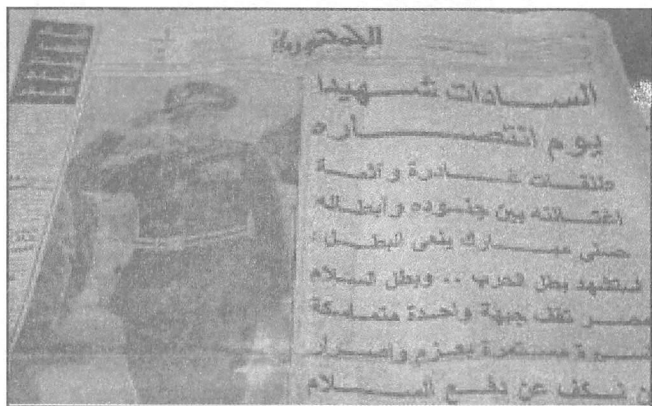 الجمهورية
السادات شهيدا
يوم انتصاره
طلقات غادرة وآثمة
اغتالته بين جنوده وأبطاله
حسنى مبارك ينعى البطل :
استشهد بطل الحرب .. وبطل السلام
مصر تقف جبهة واحدة متماسكة
مسيرة مستمرة بعزم وإصرار
لن نكف عن دفع السلام